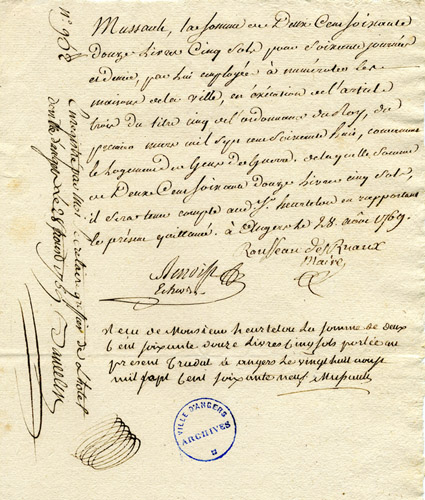 Mussault, la somme de Deux Cent soixante
douze Livres Cinq sols pour soixante journées
et demie, par lui employée à numéroter les
maisons de la ville, en exécution de l'article
trois du titre cinq de l'ordonnance du Roy, du
premier mars mil sept cent soixante huit, concernant
le logement de Gens de Guerre. de laquelle somme
de Deux Cent soixante douze Livres Cinq sols,
il sera tenu compte aud. Sr. heurtelou en rapportant
le présent quittancé. à Angers le 28. aoûst 1769.
Rousseau de
Maire
Benoist
Echevin
Receu de Monsieur heurtelou la somme de deux
Cent soixante douze Livres Cinq sols portée au
présent à angers le vingt huit aoust
mil sept Cent soixante neuf Mussault
N° 958
Enregistré par moi secrétaire greffier de L'hotel
VILLE D'ANGERS
ARCHIVES